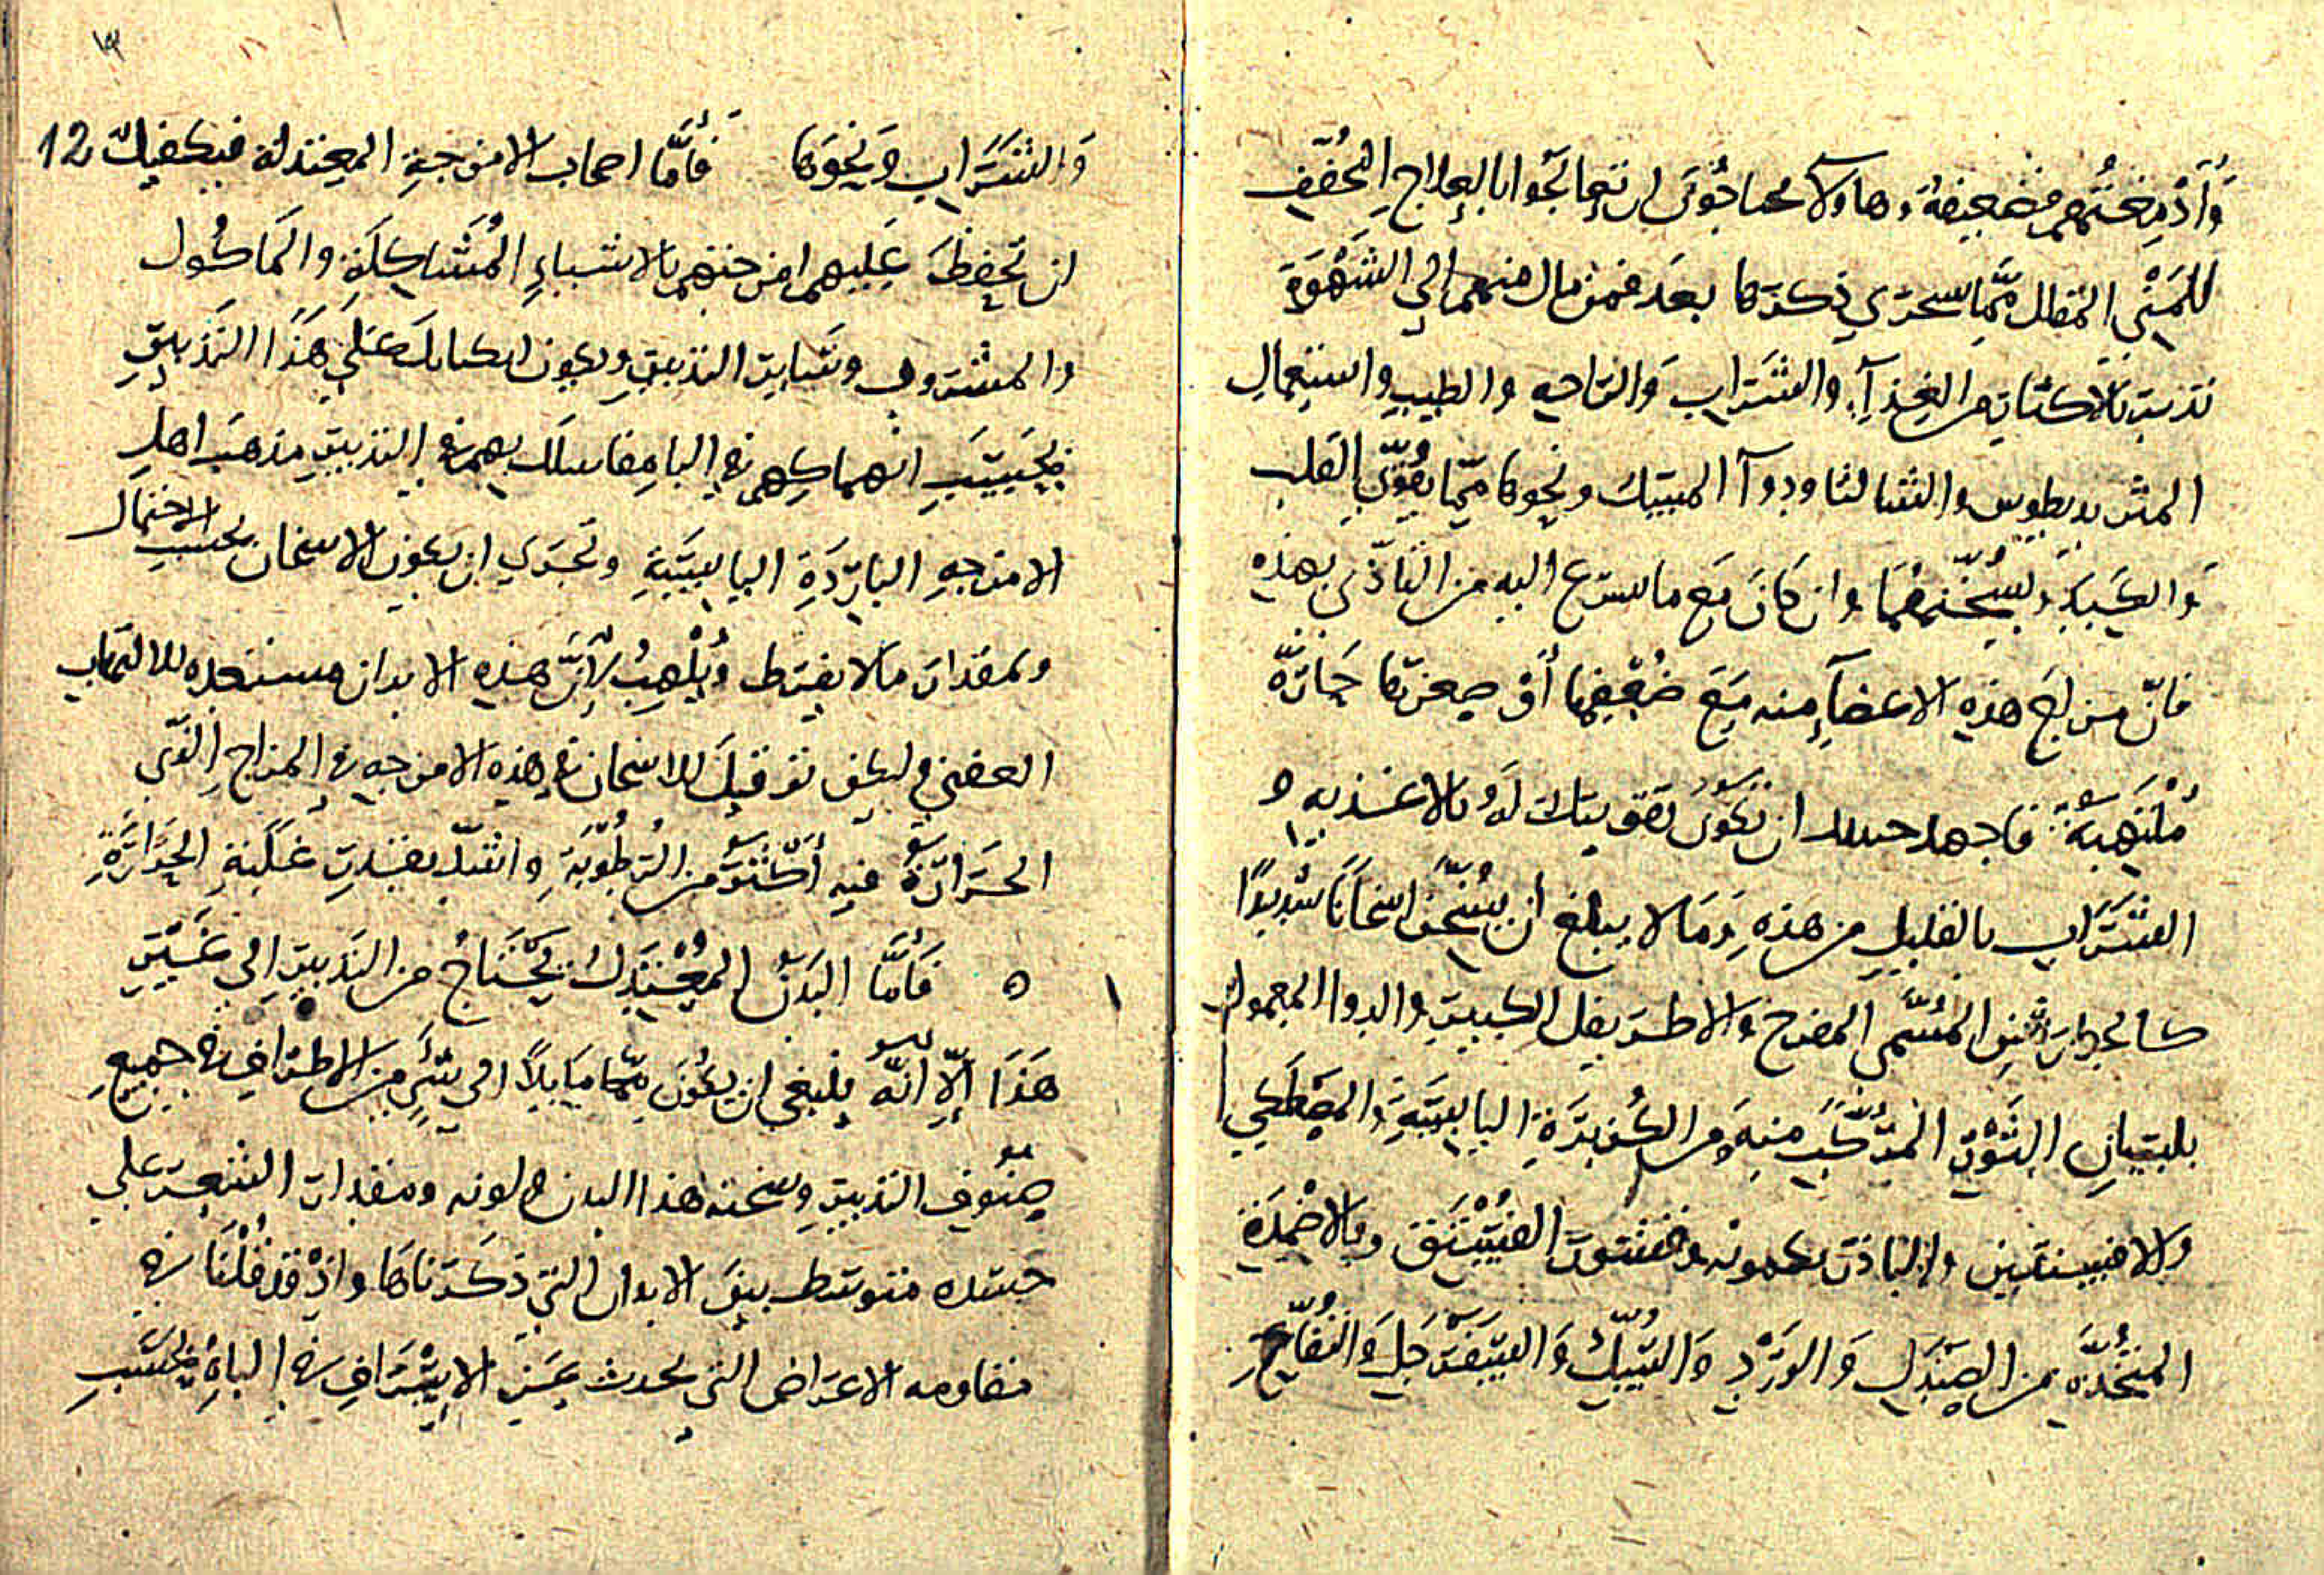 وَأَدْمِغَتُهم ضعيفة وهاولآ محتاجُون ان يتعالجُوا بالعلاج المُخفّف
للمَنْي المقلل ممّا سيجري ذكرها بعد فمن مال منهم الي الشَهْوَة
تدبيره بالاكثار من الغِذآءِ والشَرَاب وَالرّاحه والطيب واستِعمالِ
المثروديطوس والشالثا ودوآ المسك ونحوها ممّا يُقَوّي القلب
وَالكَبِد ويُسَخّنهُمَا وان كانَ مَع ما يسرع اليه من التأذّي بهذه
فانّ مزاجَ هذه الاعضآءِ منه مَعَ ضُعْفِها أوْ صِغرهَا حَارّة
مُلْتَهِبَة فاجهد ان تكون تقويتك لَهُ بالاغذيه و
الشَرَاب بالقليل من هذه وَمَا لا يبلغ ان يُسَخّن اسخانًا شديدًا
كالجوارشن المُسَمّى المفرح والاطريفل الكبير والدوا المعمول
بلسَانِ الثَوْر المُرَكّبِ منه ومن الكُزبَرَةِ اليابِسَةِ والمصْطَكي
والافسنتين والباذرنجبونه وقشور الفُسْتَق وبالاضْمِدَةِ
المتّخذَه من الصَنْدَلِ وَالوَرْدِ وَالسُّكّ وَالسَفَرْجَلِ وَالتُفّاح
12
وَالشَرَاب وَنحوَها فأمَّا اصحاب الامزجةِ المعتدلة فيكفيك
ان تحفظَ عَليهم امزجتهم بالاشياءِ المُشَاكِلَةِ والمَاكُول
والمشروب وسَاير التدبير ويكون لكلامك عَلي هَذَا التَدْبيرِ
بحَسَبِ انهماكِهم في الباه فاسلك بهم في التدبير مذهَب اهل
الامزجه البَارِدَةِ اليابِسَةِ وتجري ان يكون الاسخان بحسب الاحتمال
وبمقدار ما لا يفرط ويُلْهِبُ لِأنّ هذه الابدان مستعده للالتهاب
العضني وليكن توقيك للاسخان في هذه الامزجه في المزاج الذي
الحَرَارَةُ فيه أكْثَر من الرُطُوبَةِ واشدّ بقدرِ غَلَبَةِ الحَرَارَةِ
ه فَأمَّا البَدَنُ المُعْتَدِل يَحْتَاجُ من التَدبيرِ الي غَيْرِ
هَذَا إلّا أنّه ينبغي ان يكُونَ ممّا مَايلًا الي شيءٍ من الاطرَاف في جميع
صُنوفِ التدبير وسحنة هذا البدن ولونه ومقدار الشعر علي
جسده متوسط بين الابدان التي ذَكَرْناهَا واذْ قد قُلْنَا في
مقاومه الاعرَاض التي يحدث عَن الإسْرَافِ في الباهِ بحَسَبِ